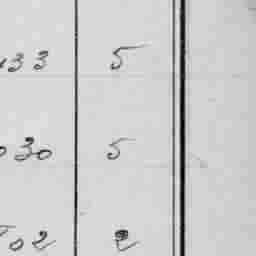 33 5
30 5
02 2